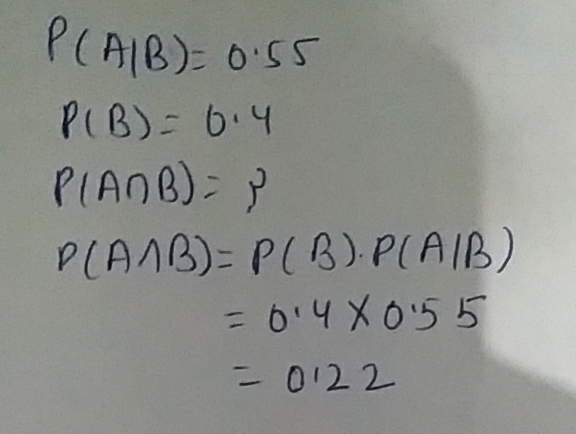 P(A|B)= 0.55
P(B)= 0.4
P(A∩B)= ?
P(A∩B)= P(B).P(A|B)
= 0.4 X 0.55
= 0.22